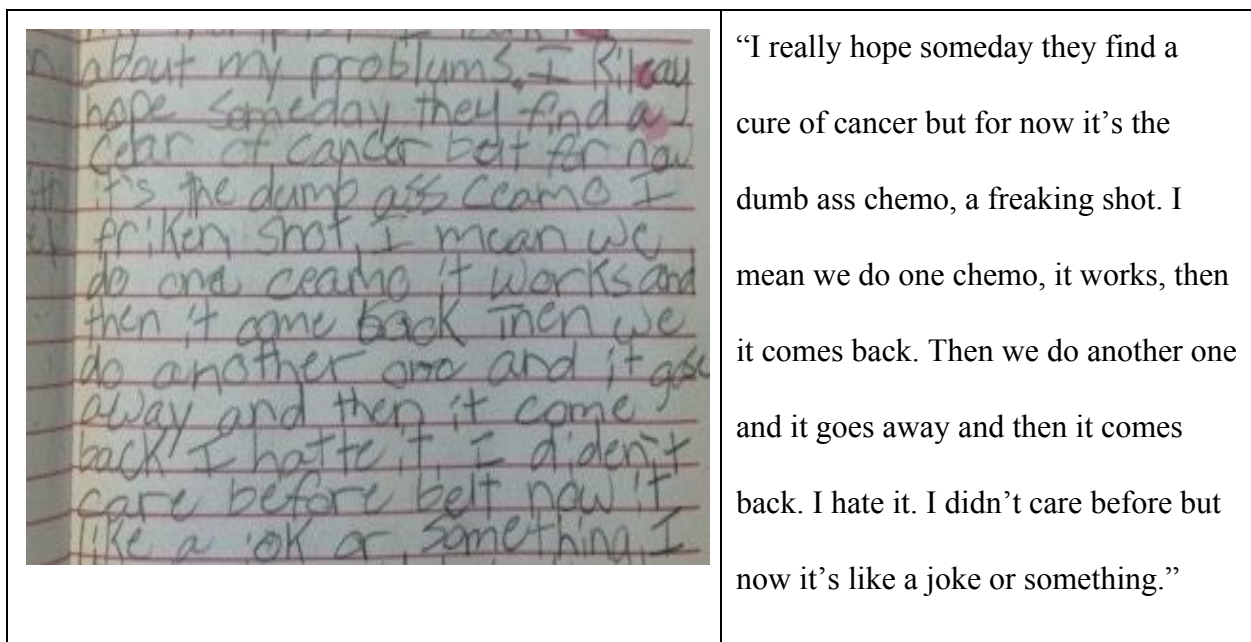 about my problums. I Rileay
hope someday they find a
cear of cancer belt for now
it's the dumb ass ceamo I
friken shot. I mean we
do one ceamo it works and
then it come back Then we
do another one and it gose
away and then it come
back I hatte it. I diden't
care before belt now it
like a jok or something. I
“I really hope someday they find a
cure of cancer but for now it’s the
dumb ass chemo, a freaking shot. I
mean we do one chemo, it works, then
it comes back. Then we do another one
and it goes away and then it comes
back. I hate it. I didn’t care before but
now it’s like a joke or something.”